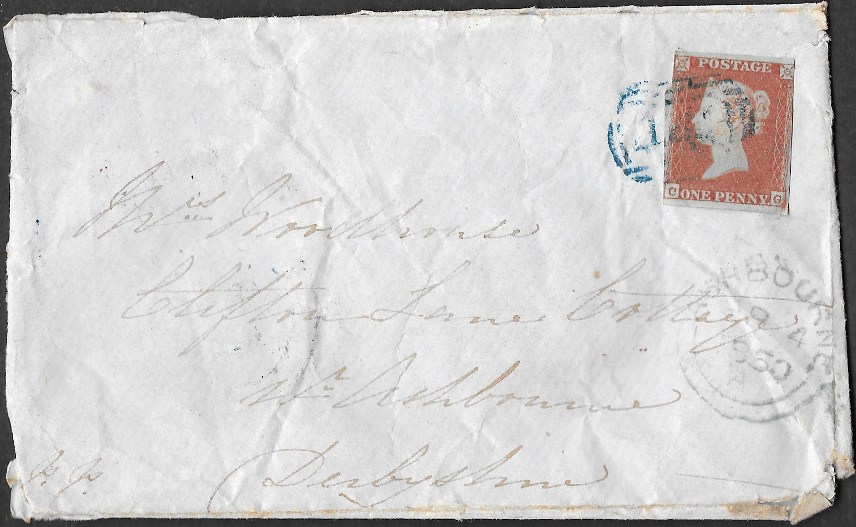 POSTAGE
ONE PENNY
C G
Mrs Woodhouse
Clifton Lane Cottage
Nr Ashbourne
Derbyshire
SHBOURNE